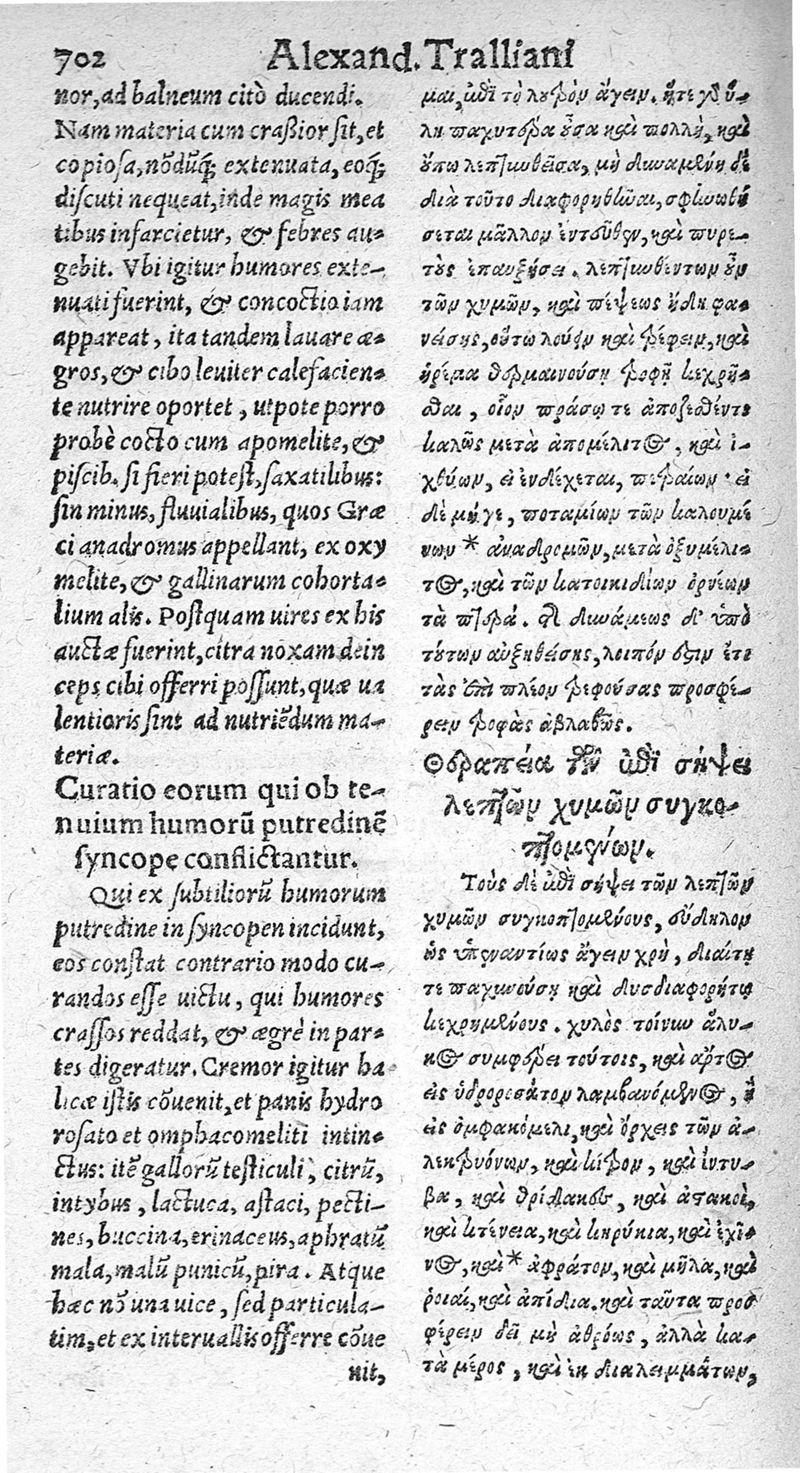 702 Alexand. Tralliani
nor, ad balneum citò ducendi.
Nam materia cum craßior sit, et
copiosa, nōdūq; extenuata, eoq;
discuti nequeat, inde magis mea
tibus infarcietur, & febres au-
gebit. Vbi igitur humores exte-
nuati fuerint, & concoctio iam
appareat, ita tandem lauare æ-
gros, & cibo leuiter calefacien-
te nutrire oportet, utpote porro
probè cocto cum apomelite, &
piscib. si fieri potest, saxatilibus:
sin minus, fluuialibus, quos Græ
ci anadromus appellant, ex oxy
melite, & gallinarum cohorta-
lium alis. Postquam uires ex his
auctæ fuerint, citra noxam dein
ceps cibi offerri possunt, quæ ua
lentioris sint ad nutriēdum ma-
teriæ.
Curatio eorum qui ob te-
nuium humorū putredinē
syncope conflictantur.
Qui ex subtiliorū humorum
putredine in syncopen incidunt,
eos constat contrario modo cu-
randos esse uictu, qui humores
crassos reddat, & ægrè in par-
tes digeratur. Cremor igitur ha
licæ istis cōuenit, et panis hydro
rosato et omphacomeliti intin-
ctus: itē gallorū testiculi, citrū,
intybus, lactuca, astaci, pecti-
nes, buccina, erinaceus, aphratū
mala, malū punicū, pira. Atque
hæc nō una uice, sed particula-
tim, et ex interuallis offerre cōue
nit,
μαι, ἐπὶ τὸ λουτρὸν ἄγειν. ἥτε γὰρ ὕ-
λη παχυτέρα οὖσα καὶ πολλὴ, καὶ
οὔπω λεπτυνθεῖσα, μὴ δυναμένη δὲ
διὰ τοῦτο διαφορηθῆναι, σφηνωθή
σεται μᾶλλον ἐντεῦθεν, καὶ πυρε-
τοὺς ἐπαυξήσει. λεπτυνθέντων οὖν
τῶν χυμῶν, καὶ πέψεως ἤδη φα-
νείσης, οὕτω λούειν καὶ τρέφειν, καὶ
ἠρέμα θερμαινούσῃ τροφῇ κεχρῆ-
σθαι, οἷον πράσῳ τε ἀποζεσθέντι
καλῶς μετὰ ἀπομέλιτος, καὶ ἰ-
χθύων, εἰ ἐνδέχεται, πετραίων· εἰ
δὲ μή γε, ποταμίων τῶν καλουμέ
νων * ἀναδρομῶν, μετὰ ὀξυμέλι-
τος, καὶ τῶν κατοικιδίων ὀρνέων
τὰ πτερά. τῆς δυνάμεως δ' ὑπὸ
τούτων αὐξηθείσης, λοιπόν ἐστιν ἔτι
τὰς ἐπὶ πλέον τρεφούσας προσφέ-
ρειν τροφὰς ἀβλαβῶς.
Θεραπεία τῶν ἐπὶ σήψει
λεπτῶν χυμῶν συγκο-
πτομένων.
Τοὺς δὲ ἐπὶ σήψει τῶν λεπτῶν
χυμῶν συγκοπτομένους, εὔδηλον
ὡς ὑπεναντίως ἄγειν χρὴ, διαίτῃ
τε παχυνούσῃ καὶ δυσδιαφορήτῳ
κεχρημένους. χυλὸς τοίνυν ἄλι-
κος συμφέρει τούτοις, καὶ ἄρτος
εἰς ὑδροροσάτον λαμβανόμενος, ἢ
εἰς ὀμφακόμελι, καὶ ὄρχεις τῶν ἀ-
λεκτρυόνων, καὶ κίτρον, καὶ ἴντυ-
βα, καὶ θρίδακες, καὶ ἀστακοί,
καὶ κτένεια, καὶ κηρύκια, καὶ ἐχῖ-
νος, καὶ * ἀφράτον, καὶ μῆλα, καὶ
ῥοιαί, καὶ ἀπίδια. καὶ ταῦτα προσ
φέρειν δεῖ μὴ ἀθρόως, ἀλλὰ κα-
τὰ μέρος, καὶ ἐκ διαλειμμάτων,